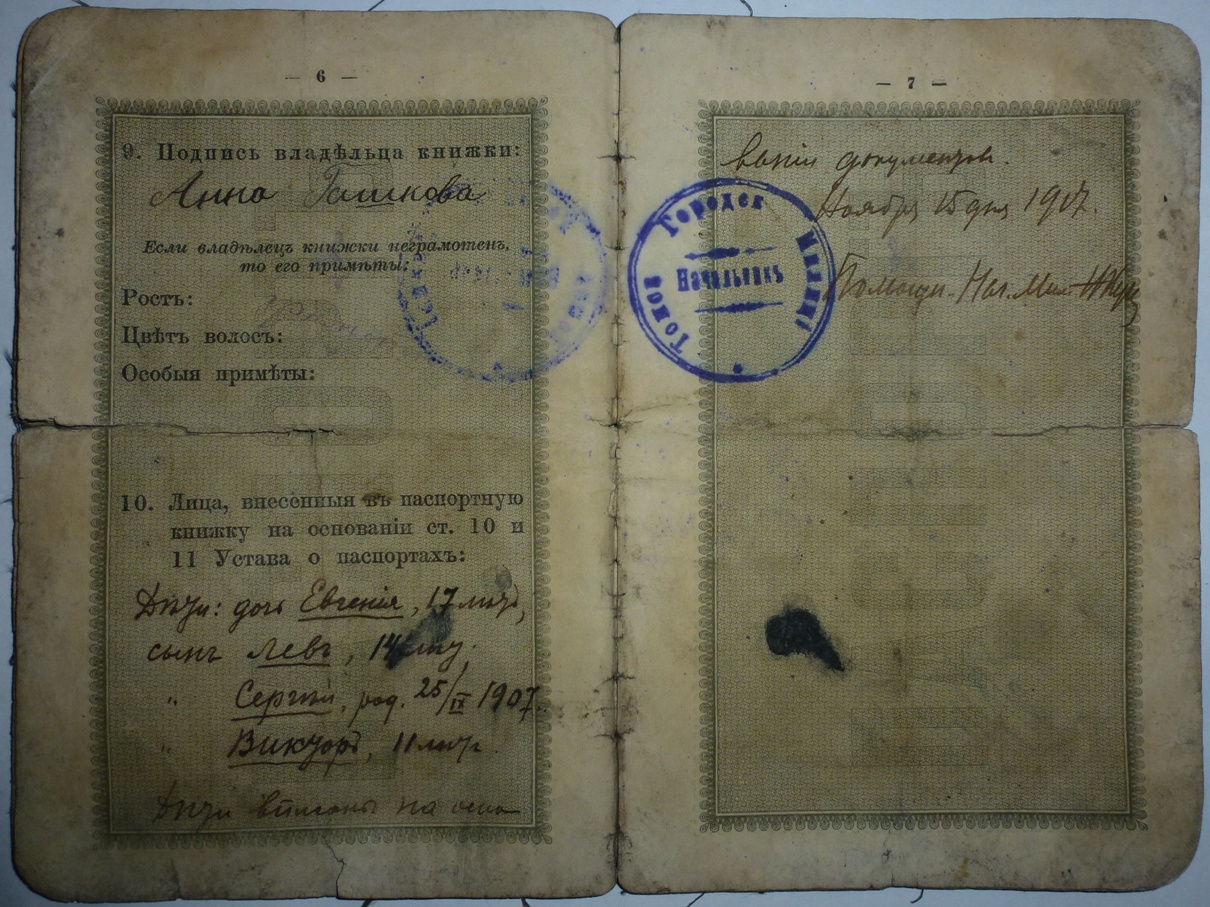 — 6 —
9. Подпись владѣльца книжки:
Анна Гашкова
Если владѣлецъ книжки неграмотенъ,
то его примѣты:
Ростъ:
Цвѣтъ волосъ:
Особыя примѣты:
10. Лица, внесенныя въ паспортную
книжку на основаніи ст. 10 и
11 Устава о паспортахъ:
Дѣти: дочь Евгенія, 17 лѣтъ,
сынъ Левъ, 14 лѣтъ.
" Сергѣй, род. 25/IX 1907.
" Викторъ, 11 лѣтъ.
Дѣти вписаны на осно
— 7 —
ваніи документовъ.
Ноября 15 дня 1917.
Городск Милиц
Начальникъ
Томск
Помощн. Нач. Мил.